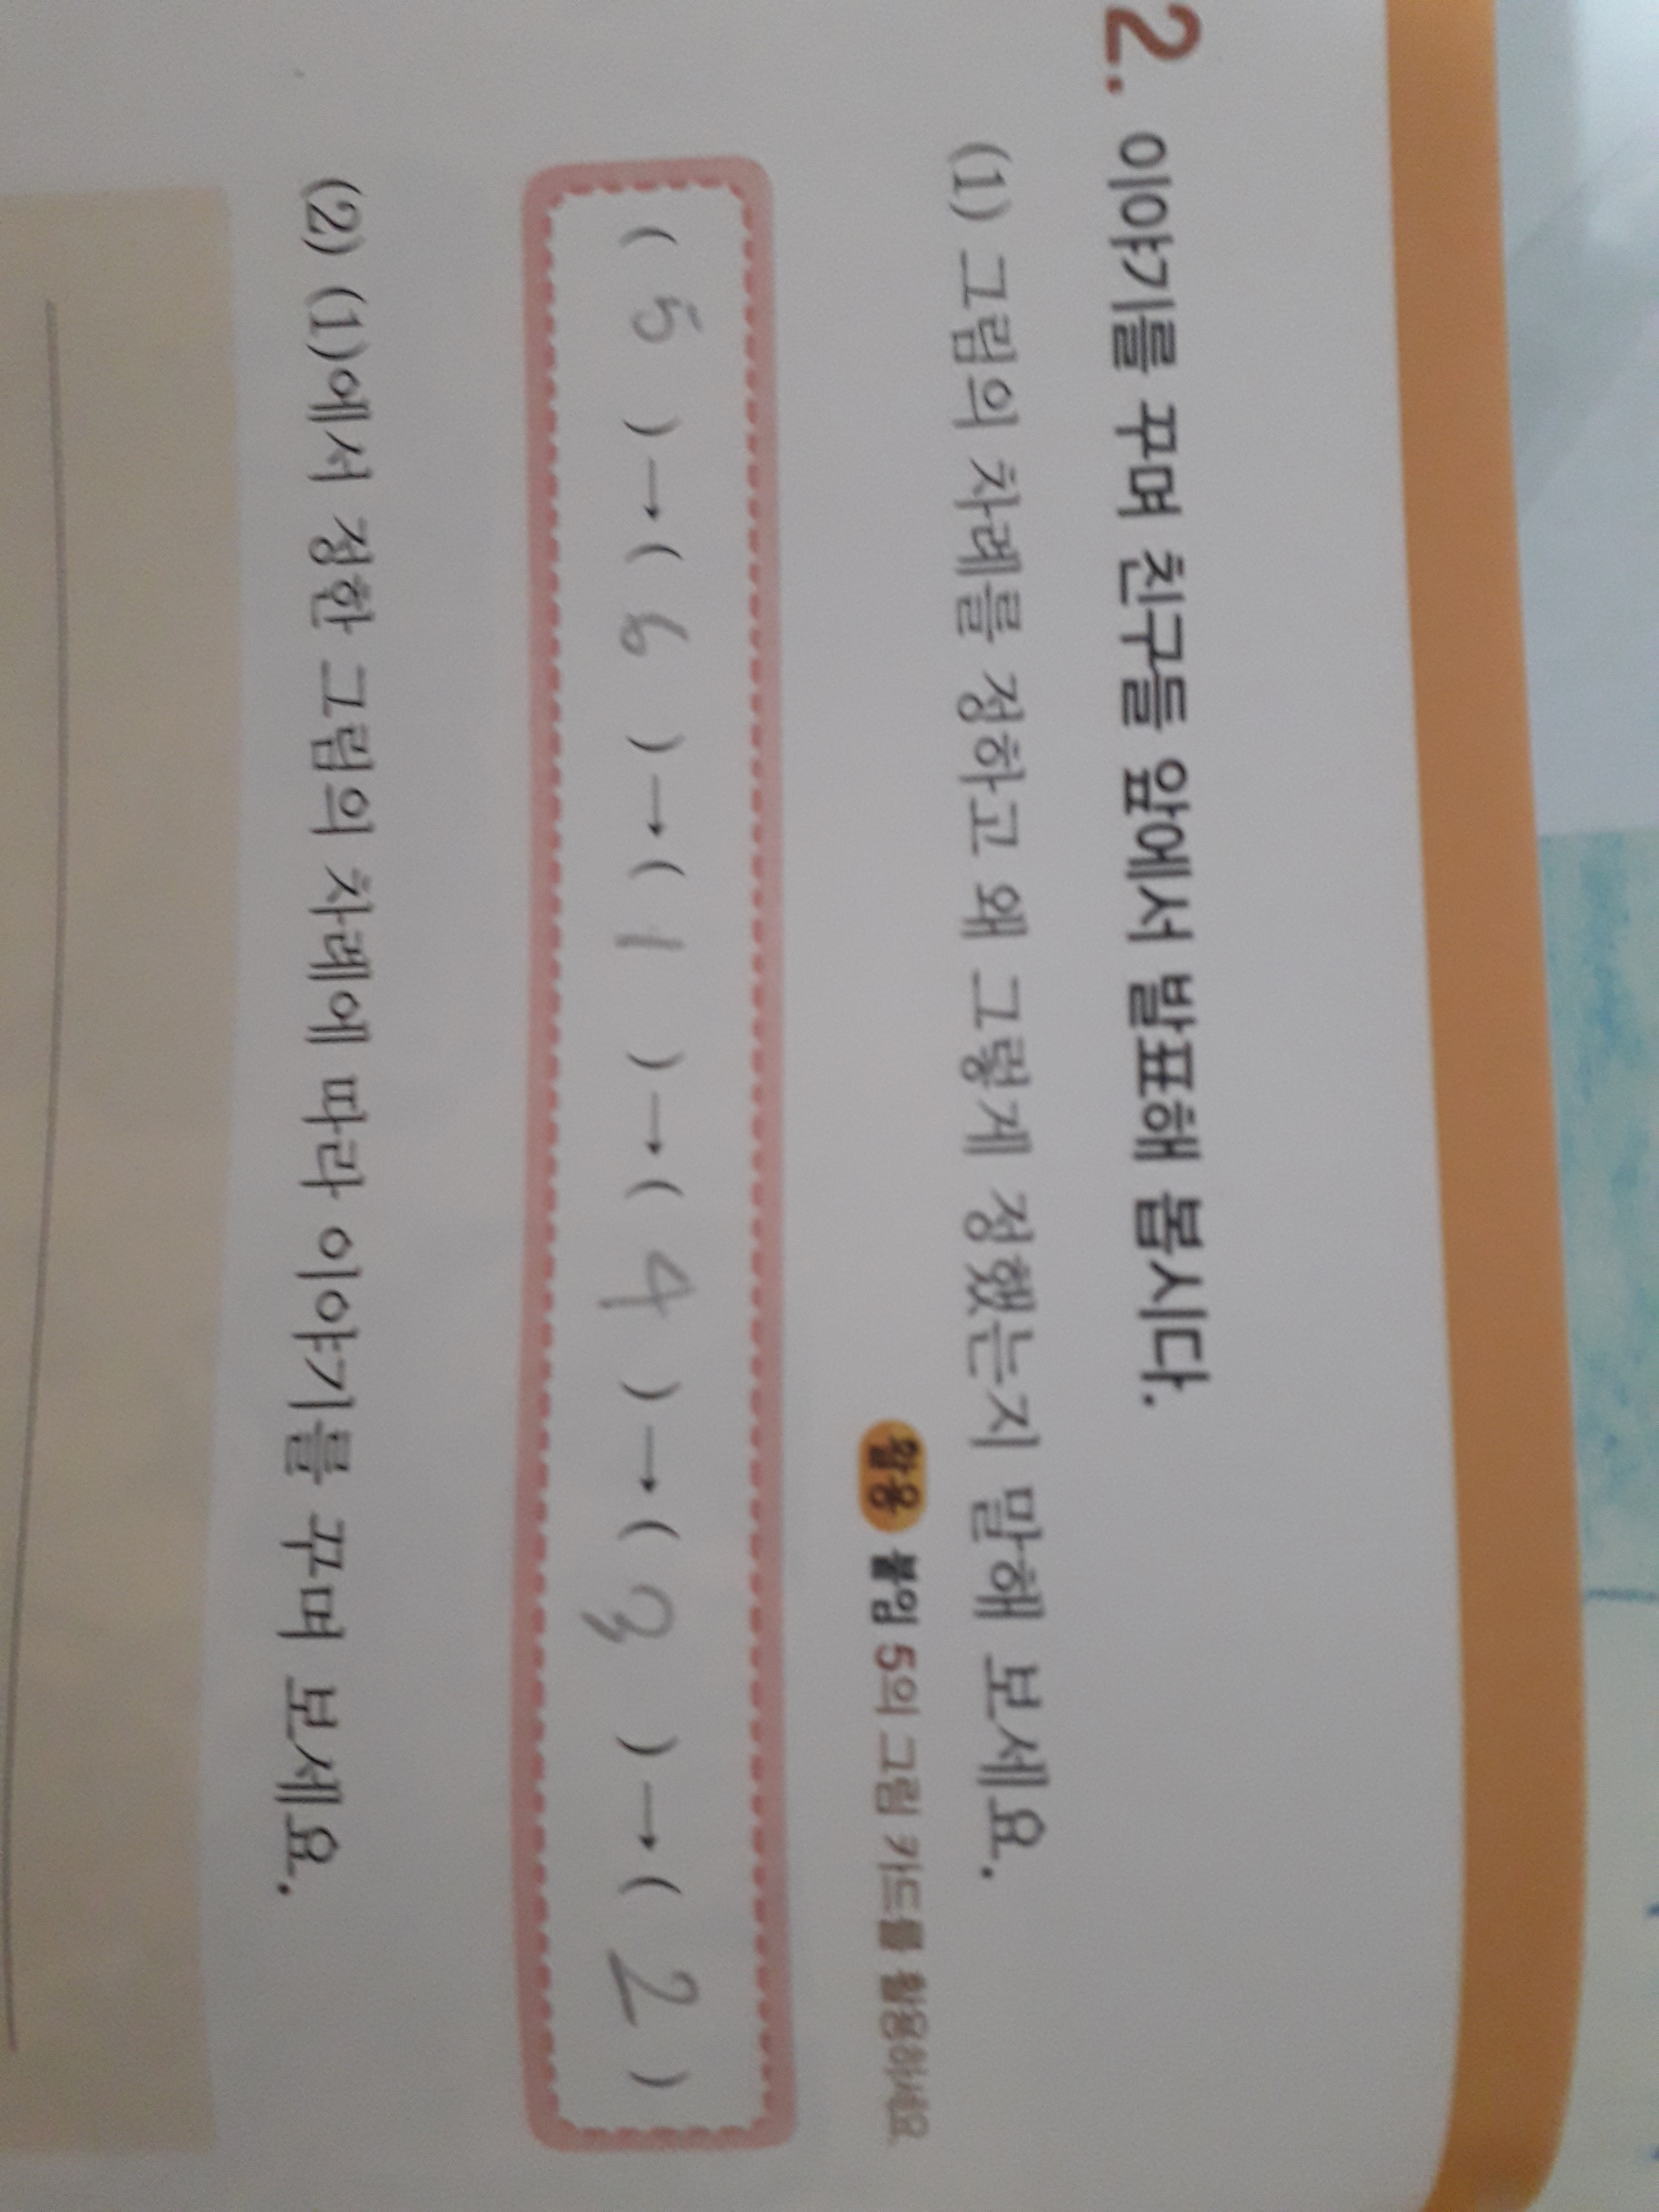 2. 이야기를 꾸며 친구들 앞에서 발표해 봅시다.
(1) 그림의 차례를 정하고 왜 그렇게 정했는지 말해 보세요.
활용 붙임 5의 그림 카드를 활용하세요
( 5 ) → ( 6 ) → ( 1 ) → ( 4 ) → ( 3 ) → ( 2 )
(2) (1)에서 정한 그림의 차례에 따라 이야기를 꾸며 보세요.